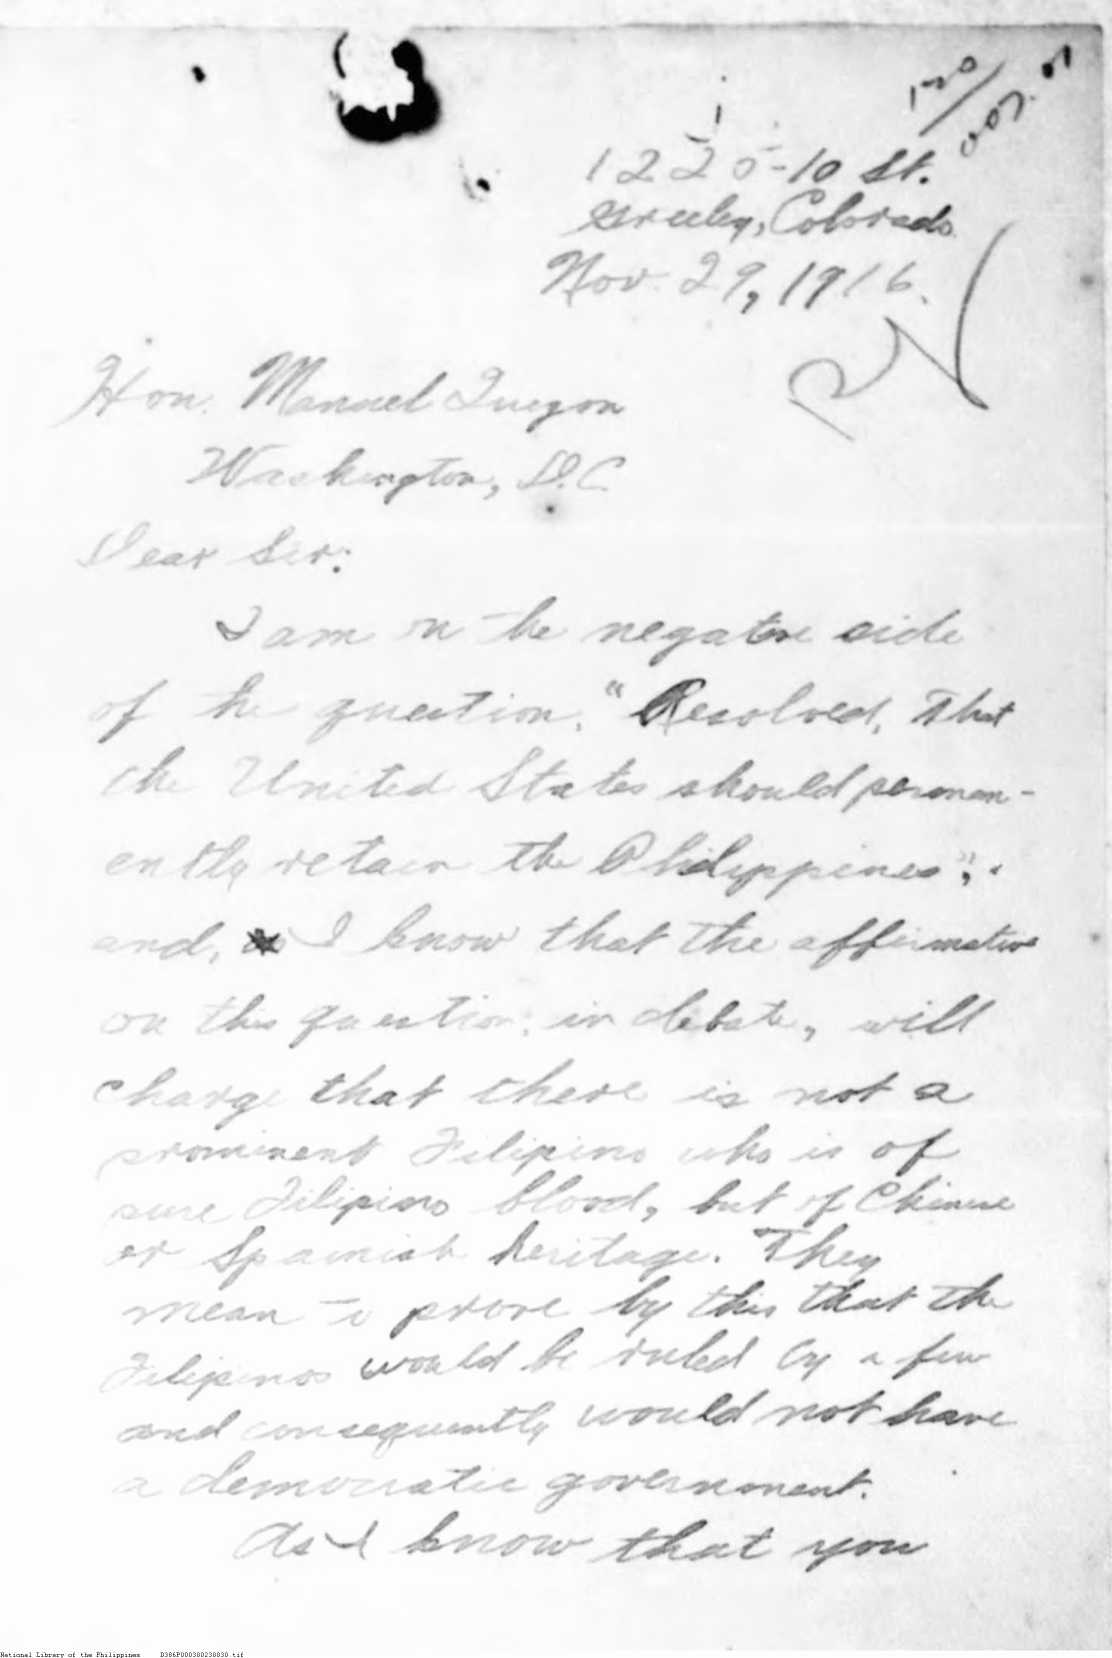 1225-10 St.
Greeley, Colorado.
Nov. 29, 1916.
Hon. Manuel Quezon
Washington, D.C.
Dear Sir:
I am on the negative side
of the question, "Resolved, That
the United States should perman-
ently retain the Philippines",.
and, I know that the affirmative
on this question, in debate, will
charge that there is not a
prominent Filipino who is of
pure Filipino blood, but of Chinese
or Spainish heritage. They
mean to prove by this that the
Filipinos would be ruled by a few
and consequently would not have
a democratic government.
As I know that you
National Library of the Philippines D386P000380238830.tif